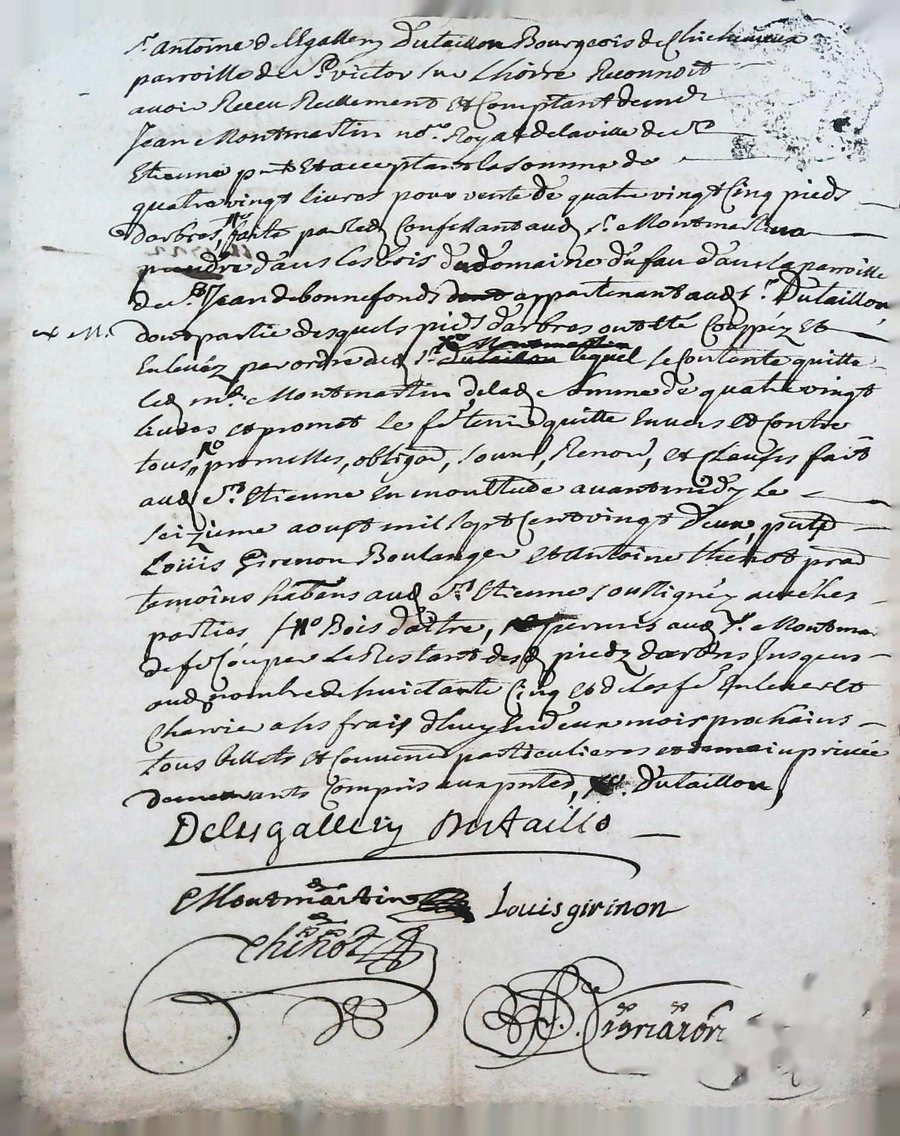 Sr. Antoine delesgallery Dutaillou Bourgeois de
parroisse de St. victor sur Lhoire Reconnoit
avoir Receu Reellement et Comptant de mr
Jean Montmartin nore Royal de la ville de St
Etienne pnt et acceptant la somme de
quatre vingt livres pour vente de quatre vingt Cinq pieds
d'arbres, faite par led Confessant aud Sr. Montmartin
prendre dans les bois du domaine dufau dans la parroisse
de St. Jean de bonnefonds appartenant aud Sr. Dutaillou,
dont partie desquels pieds d'arbres ont esté Couppéz et
Enlevéz par ordre dud Sr. Montmartin lequel se Contente quitte
led mr. Montmartin de lad Somme de quatre vingt
livres et promet le fe tenir quitte Envers et Contre
tous, promesses, obligaon, soumis, Renon, et clauses fait
aud St. Etienne En moultude avant midy le
seizieme aoust mil sept Cent vingt deux, puts
Louis Girinon Boulanger et Antoine Chenot prad
temoins habitans aud St. Etienne soussignéz avec les
parties bois d'aître, permis aud Sr. Montmar
de fe Couper le Restant desd piedz d'arbres Jusques
aud nombre de huictante Cinq et de les fe Enlever et
Charrier a ses frais d'huy En deux mois prochains
tous billets et Conven particulieres et de main privée
demeurants Compris aux pntes, Dutaillou,
Delesgallery Dutaillo
Montmartin Louis girinon
Chenot